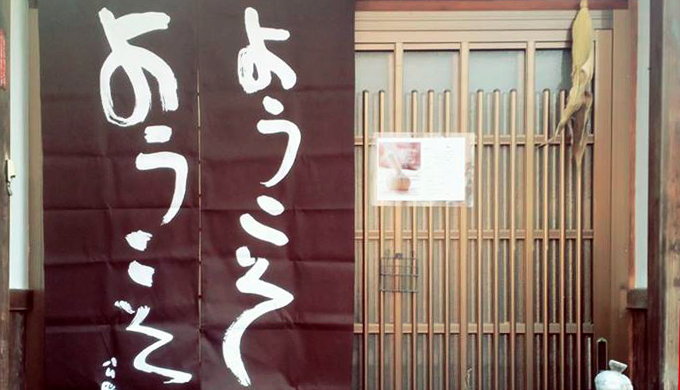 ようこそ
ようこそ